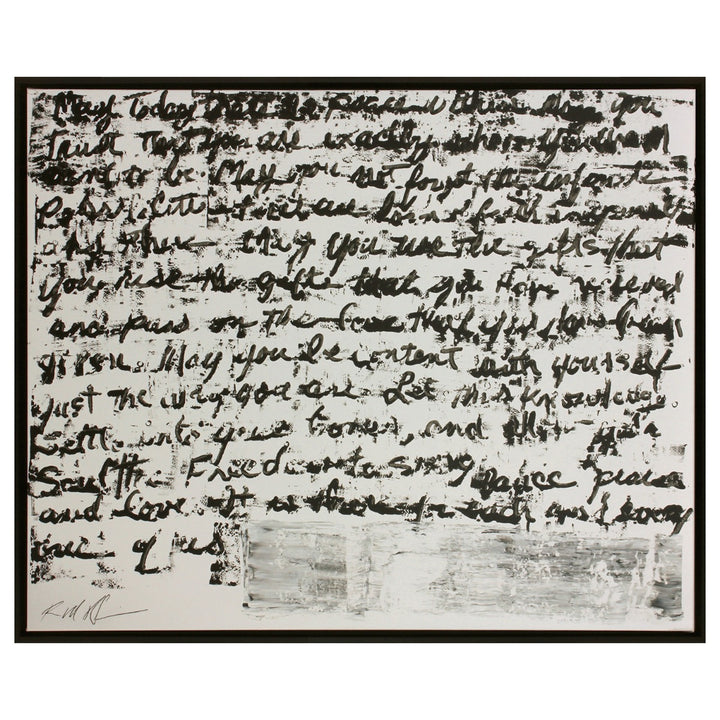 May today there be peace within. May you
trust that you are exactly where you are
meant to be. May you not forget the infinite
possibilities that are born of faith in yourself
and others. May you use the gifts that
you use the gifts that you have received
and pass on the love that you have been
given. May you be content with yourself
just the way you are. Let this knowledge
settle into your bones, and allow your
Soul the Freedom to sing, dance, praise
and love. It is there for each and every
one of us